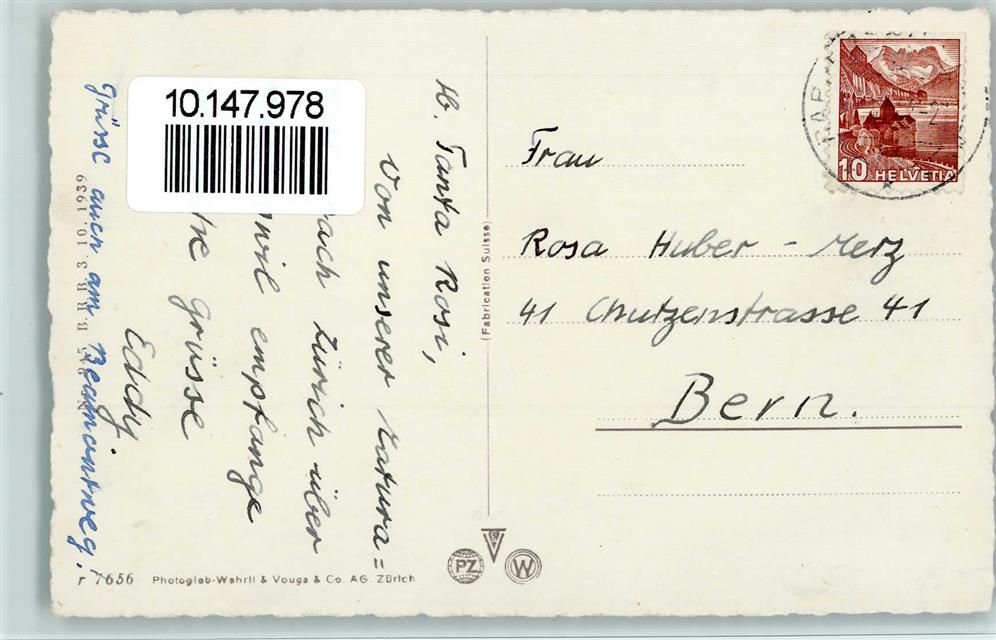 lb. Tanta Rosi,
Von unserer Natura=
ach Zürich über
wil empfange
Grüsse
Eddy.
Grüsse auch am Beaumontweg!
10.147.978
3.10.1939
r 7656
Photoglob-Wehrli & Vouga & Co. AG. Zürich
(Fabrication Suisse)
PZ
W
10 HELVETIA
Frau
Rosa Huber - Merz
41 Chutzenstrasse 41
Bern.